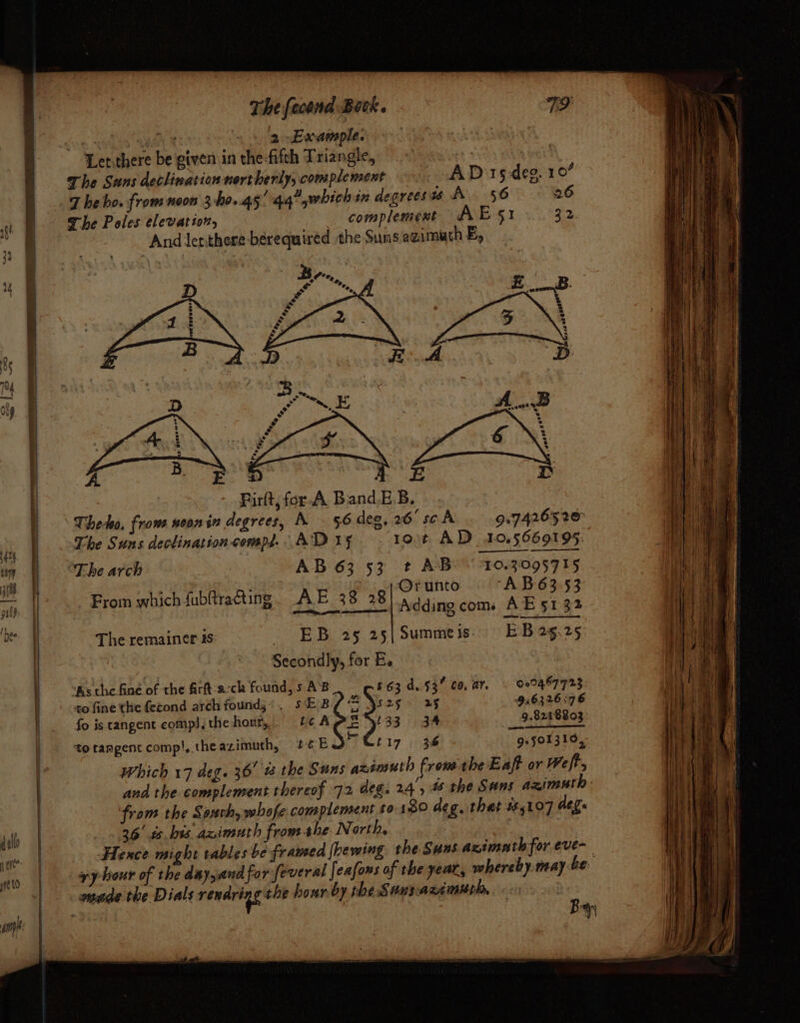 The second Book. 79
2 Example.
Let there be given in the fifth Triangle,
The Suns declination northerly, complement AD 15 deg. 10′
The ho. from noon 3 ho. 45′ 44″, which in degrees is A 56 26
The Poles elevation, complement AE 51 32
And let there be required the Suns azimuth E,
B D A E B
1 2 3
E B A D E A D
D B E A B
4 5 6
A B E D A E D
First, for A B and E B.
The ho. from noon in degrees, A 56 deg. 26′ sc A 9.7426520
The Suns declination compl. AD 15 10 t AD 10.5669195
The arch AB 63 53 t AB 10.3095715
From which subtracting AE 38 28 Or unto AB 63.53
Adding com. AE 51 32
The remainer is EB 25 25 Summe is EB 25.25
Secondly, for E.
As the sine of the first arch found, s AB s 63 d. 53′ co. ar. 0.0467723
to sine the second arch found, s EB s 25 25 9.6326576
so is tangent compl. the hour, tc A t 33 34 9.8218803
to tangent compl. the azimuth, tc E t 17 36 9.5013102
Which 17 deg. 36′ is the Suns azimuth from the East or West,
and the complement thereof 72 deg. 24′, is the Suns azimuth
from the South, whose complement to 180 deg. that is, 107 deg.
36′ is his azimuth from the North.
Hence might tables be framed shewing the Suns azimuth for eve-
ry hour of the day, and for several seasons of the year, whereby may be
made the Dials rendring the hour by the Suns azimuth.
By